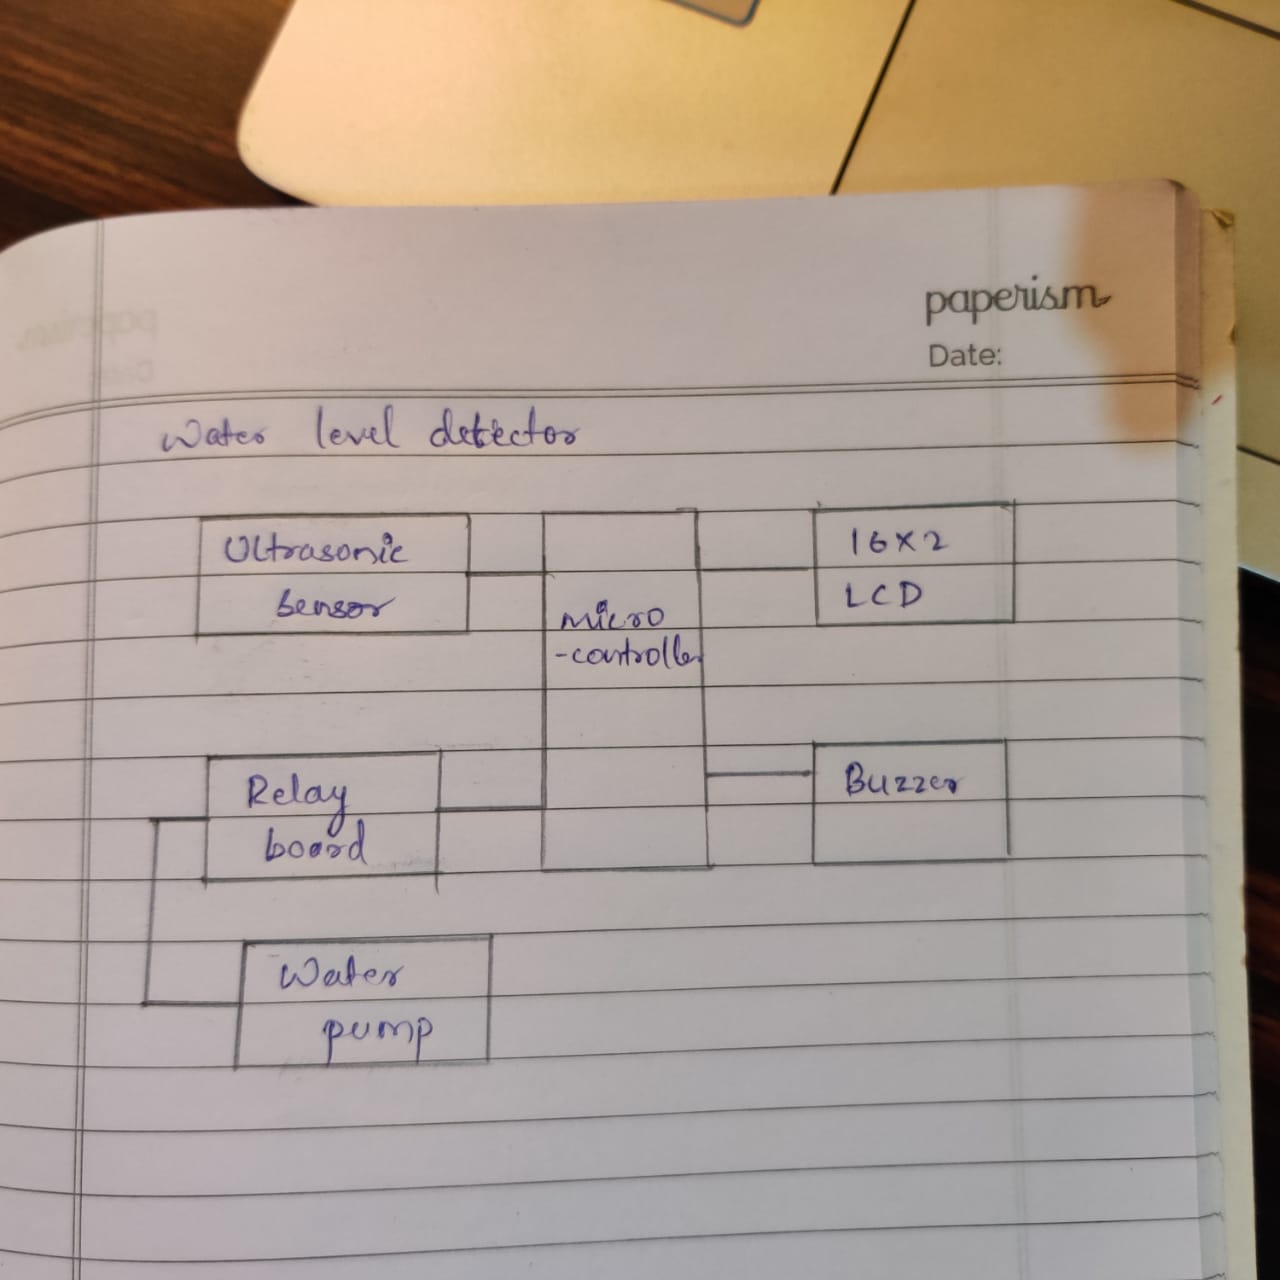 paperism
Date:
Water level detector
Ultrasonic
sensor
16x2
LCD
micro
-controller
Relay
board
Buzzer
Water
pump